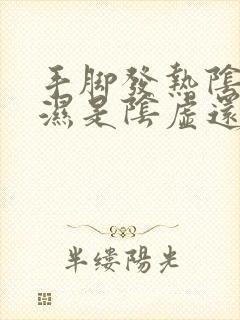 手脚發熱陰
濕是陰虛還
半缕陽光